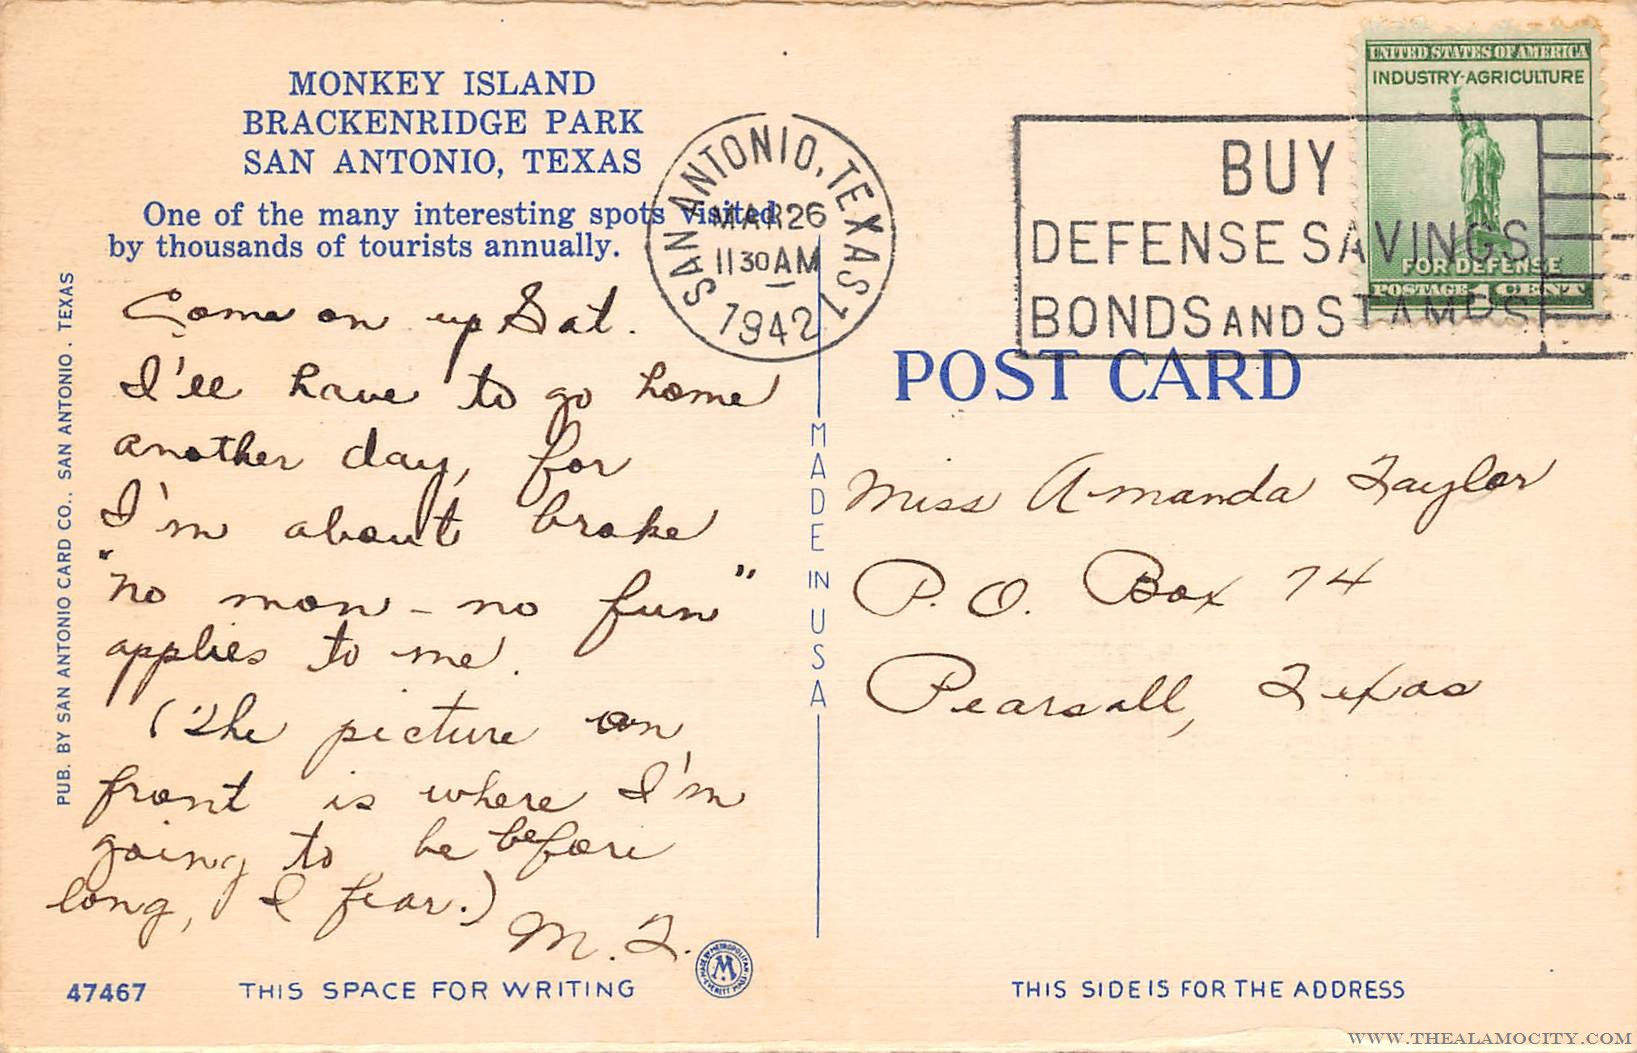 MONKEY ISLAND
BRACKENRIDGE PARK
SAN ANTONIO, TEXAS
One of the many interesting spots visited
by thousands of tourists annually.
Come on up Sat.
I'll have to go home
another day, for
I'm about broke
"no mon - no fun"
applies to me.
(The picture on
front is where I'm
going to be before
long, I fear.)
M. T.
PUB. BY SAN ANTONIO CARD CO., SAN ANTONIO, TEXAS
47467
THIS SPACE FOR WRITING
MADE BY METROPOLITAN
M
EVERETT MASS
MADE IN USA
SAN ANTONIO, TEXAS 1
MAR 26
11 30 AM
1942
BUY
DEFENSE SAVINGS
BONDS AND STAMPS
UNITED STATES OF AMERICA
INDUSTRY-AGRICULTURE
FOR DEFENSE
POSTAGE 1 CENT
POST CARD
Miss Amanda Taylor
P. O. Box 74
Pearsall, Texas
THIS SIDE IS FOR THE ADDRESS
WWW.THEALAMOCITY.COM